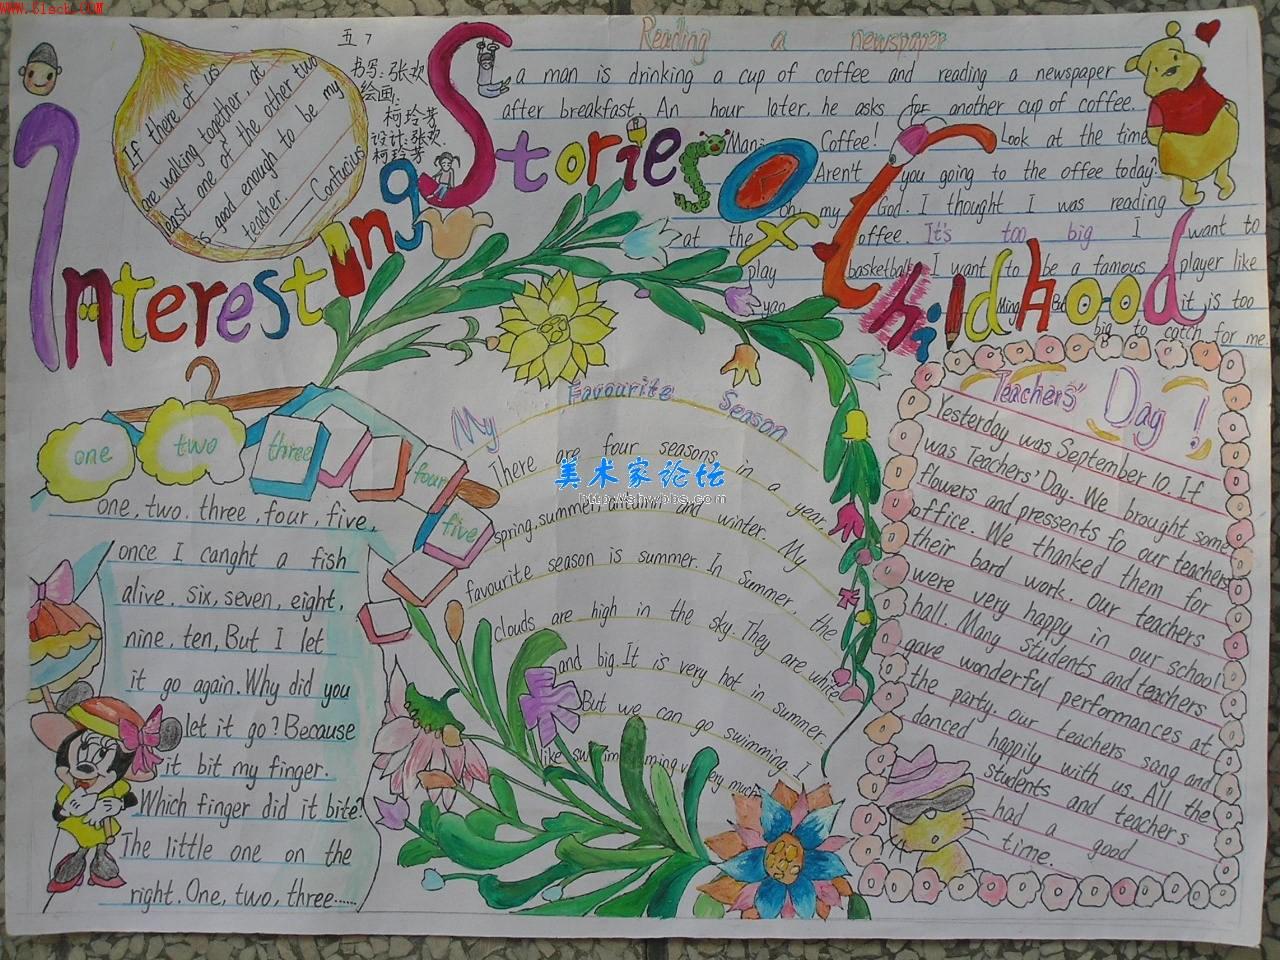 www.61ach.COM
五7
书写:张欢
绘画:
柯玲芳
设计:张欢.
柯玲芳
Interesting Stories Of Childhood
If there of us
are walking together, at
least one of the other two
is good enough to be my
teacher.
——Confucius
Reading a newspaper
a man is drinking a cup of coffee and reading a newspaper
after breakfast. An hour later, he asks for another cup of coffee.
Man: Coffee! Look at the time
Aren't you going to the offee today?
oh, my God. I thought I was reading
at the offee. It's too big I want to
play basketball. I want to be a famous player like
yao Ming But it is too
big to catch for me.
one two three four five
one, two, three, four, five,
once I canght a fish
alive. six, seven, eight,
nine, ten, But I let
it go again. Why did you
let it go? Because
it bit my finger.
Which finger did it bite?
The little one on the
right. One, two, three......
My Favourite Season
There are four seasons in a year,
spring, summer, autamn and winter. My
favourite season is summer. In Summer, the
clouds are high in the sky. They are white
and big. It is very hot in summer.
But we can go swimming. I
like very much
美术家论坛
http://shwybbs.com
Teachers' Day!
Yesterday was September 10. If
was Teachers' Day. We brought some
flowers and pressents fo our teachers
office. We thanked them for
their bard work. our teachers
were very happy in our school
hall. Mang students and teachers
gave wonderful performances at
the party. our teachers sang and
danced happily with us. All the
students and teachers
had a good
time.